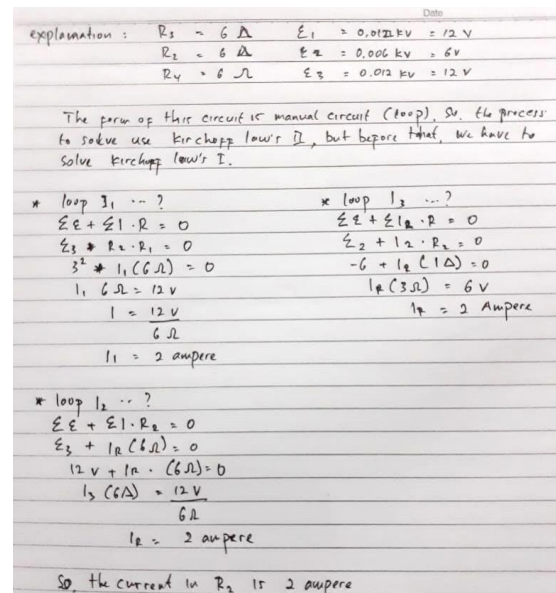 Date
explanation : R3 = 6 Ω ε1 = 0,012 kv = 12 V
R2 = 6 Ω ε2 = 0,006 kv = 6 v
R4 = 6 Ω ε3 = 0,012 kv = 12 V
The form of this circuit is manual circuit (loop), so the process
to solve use kirchoff law's II, but before that, we have to
solve kirchoff law's I.
* loop I1 ... ?
Σε + ΣI · R = 0
I1 (6 Ω) = 0
I1 6 Ω = 12 v
I = 12 V
6 Ω
I1 = 2 ampere
* loop I2 .. ?
Σε + ΣI · R2 = 0
ε3 + IR (6 Ω) = 0
12 V + IR · (6 Ω) = 0
I3 (6Ω) = 12 V
6 Ω
IR = 2 ampere
* loop I3 ...?
Σε + ΣIR · R = 0
ε2 + I2 · R2 = 0
-6 + IR (1Ω) = 0
IR (3Ω) = 6 V
IR = 2 Ampere
So, the current in R2 is 2 ampere